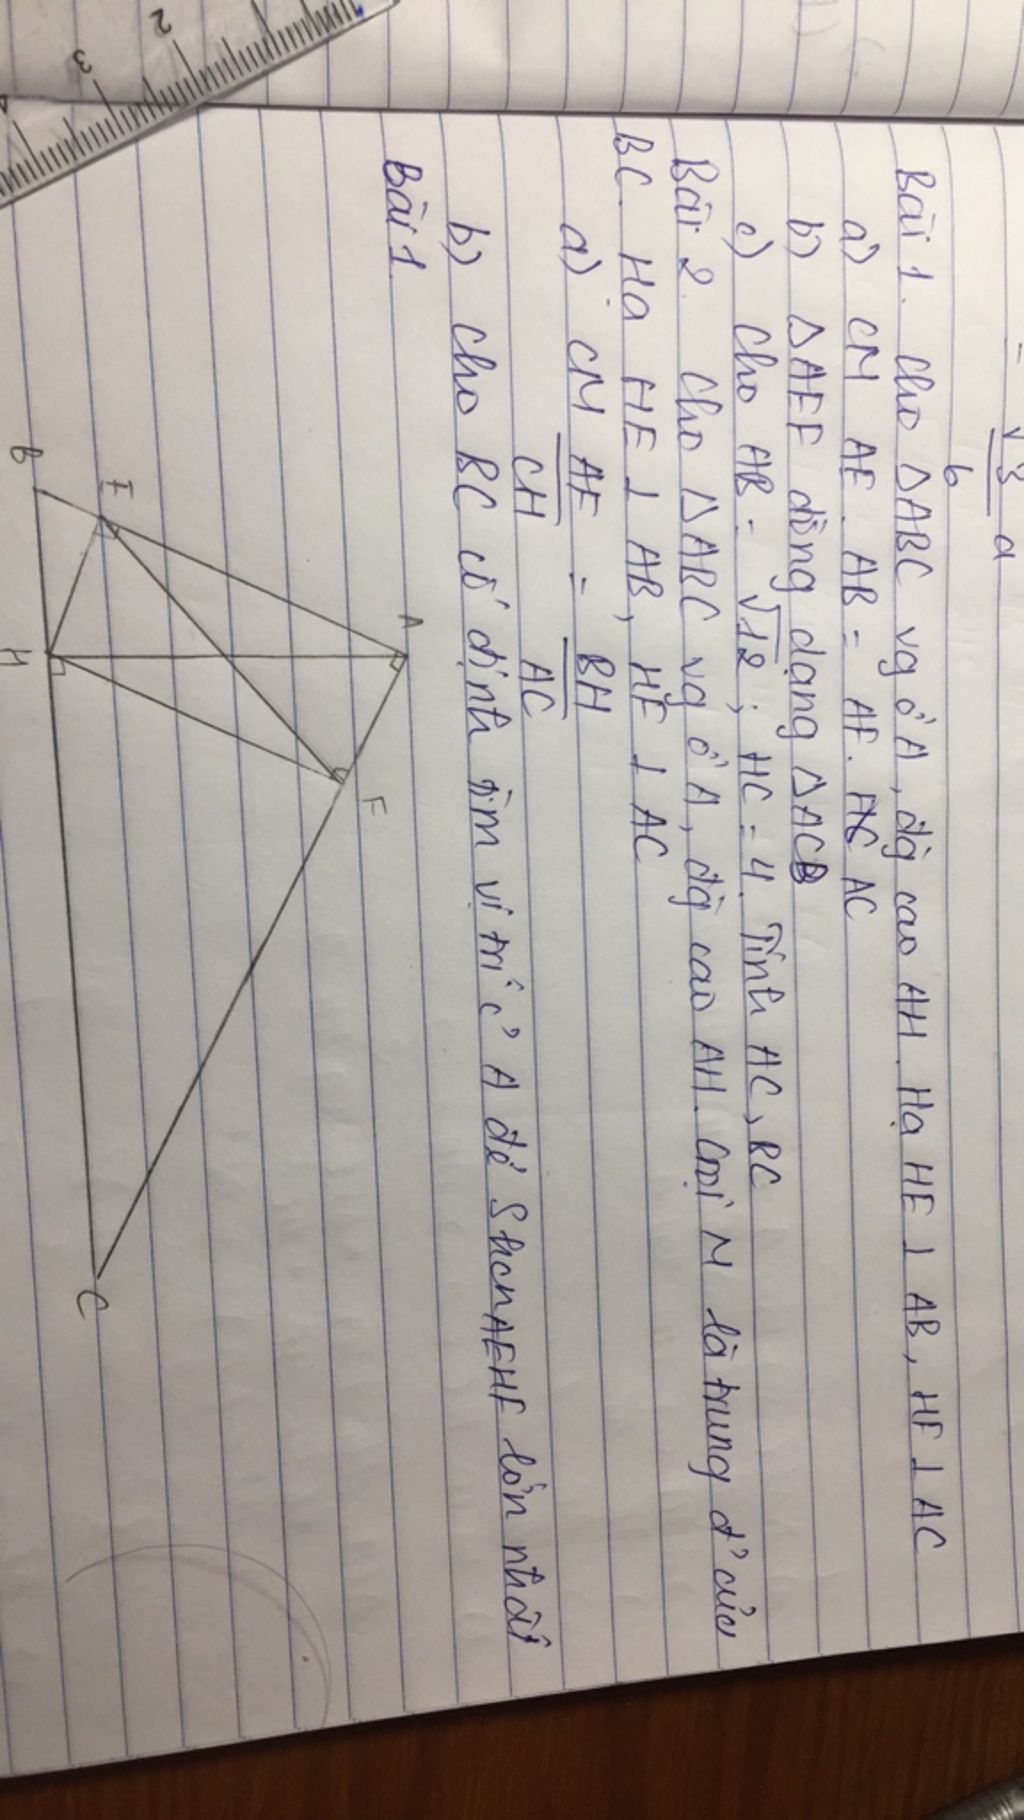 = √3 a
6
Bài 1. Cho ΔABC vg ở A, đg cao AH. Hạ HE ⊥ AB, HF ⊥ AC
a) CM AE. AB = AF. AC
b) ΔAEF đồng dạng ΔACB
c) Cho AB = √12; HC = 4. Tính AC, BC
Bài 2. Cho ΔABC vg ở A, đg cao AH. Gọi M là trung đ' của
BC. Hạ HE ⊥ AB, HF ⊥ AC
a) CM AE = BH
CH AC
b) Cho BC cố định tìm vị trí c' A để ShcnAEHF lớn nhất
Bài 1
A
E
F
B
H
C
2
3